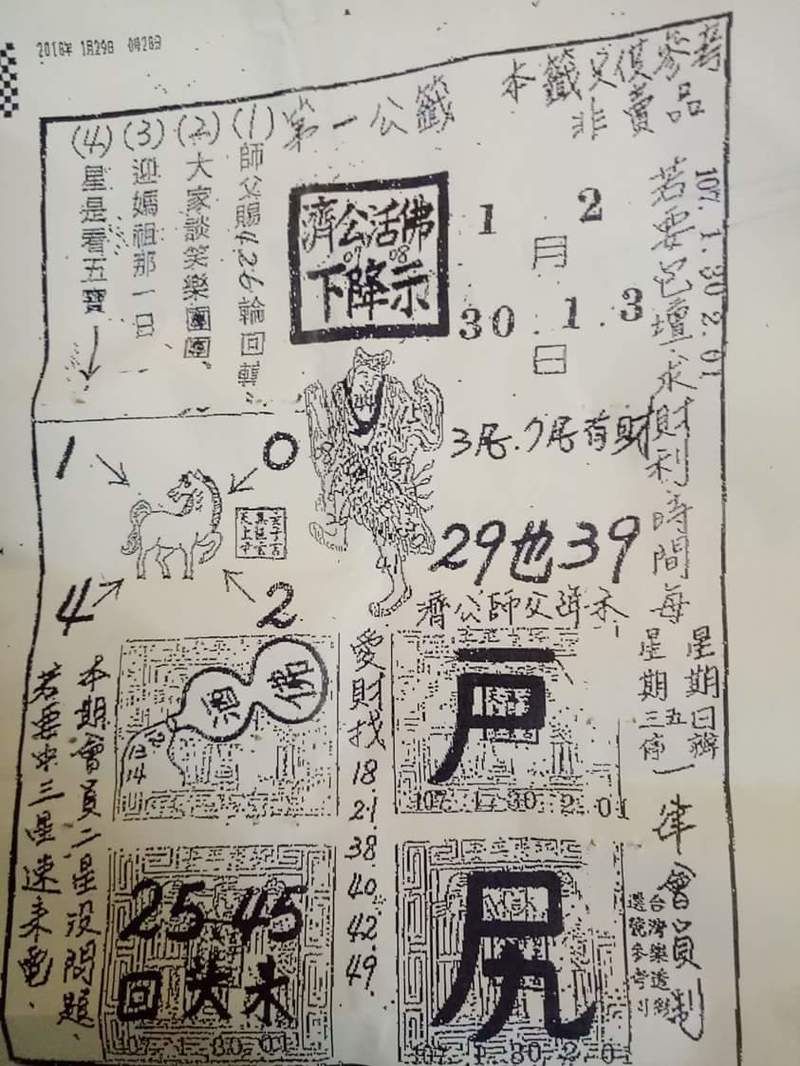 2018年 1月29日
本籤文僅參考
非賣品
第一公籤
(1)師父賜4.2.6輪回轉
(2)大家談笑樂團圓
(3)迎媽祖那一日
(4)星是看五寶
濟公活佛
07 08
下降示
1 2
月
30.1.3
日
107.1.30 2.01
若要包壇求財利時間每
星期日辦
星期三五停
一律會員制
台灣樂透彩
選號參考
3尾.7尾有財
29也39
濟公師父降示
1
0
4
2
愛財找
18
21
38
40
42
49
13
14
107.1.30 2.01
尻
107.1.30 2.01
25.45
回 未
107.1.30 01
本期會員二星沒問題
若要中三星速來電.